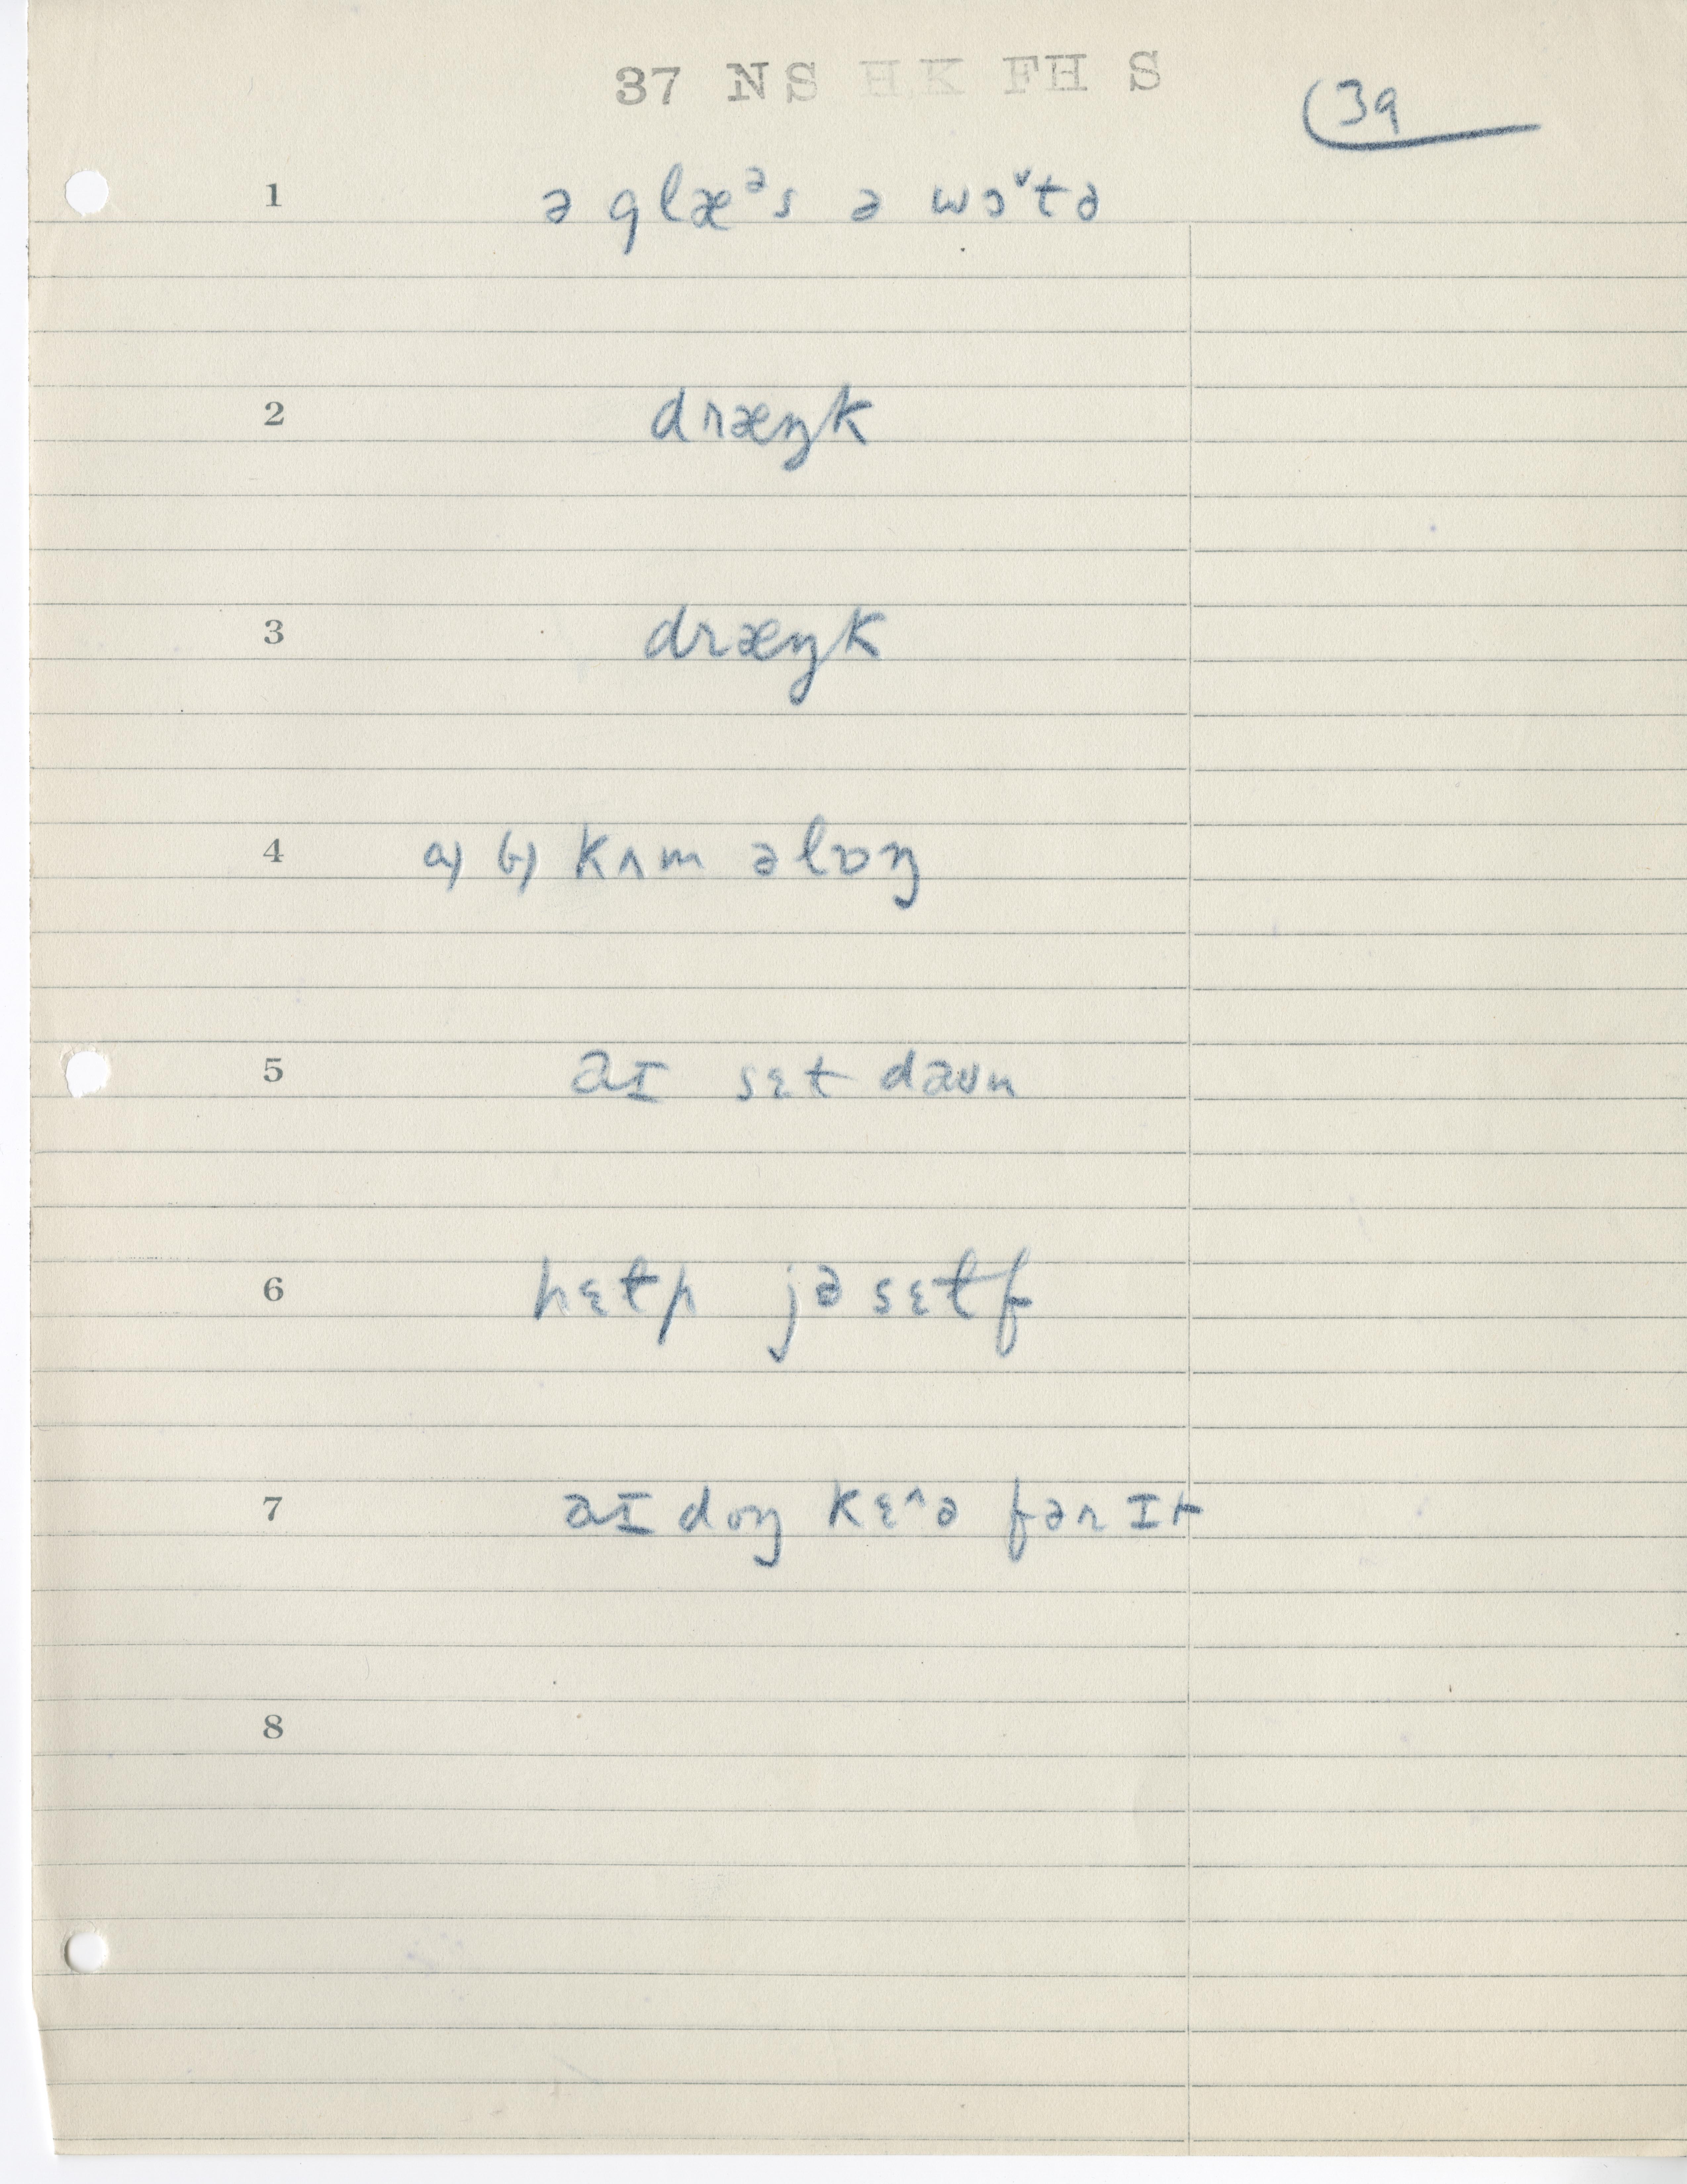 37 NS HK FH S
39
1 ə glæᵊs ə wɔ˅tə
2 dræŋk
3 dræŋk
4 a) b) kʌm əlɒŋ
5 aɪ sɛt daʊn
6 hɛɫp jəsɛɫf
7 aɪ doŋ kɛ^ə fər ɪt
8